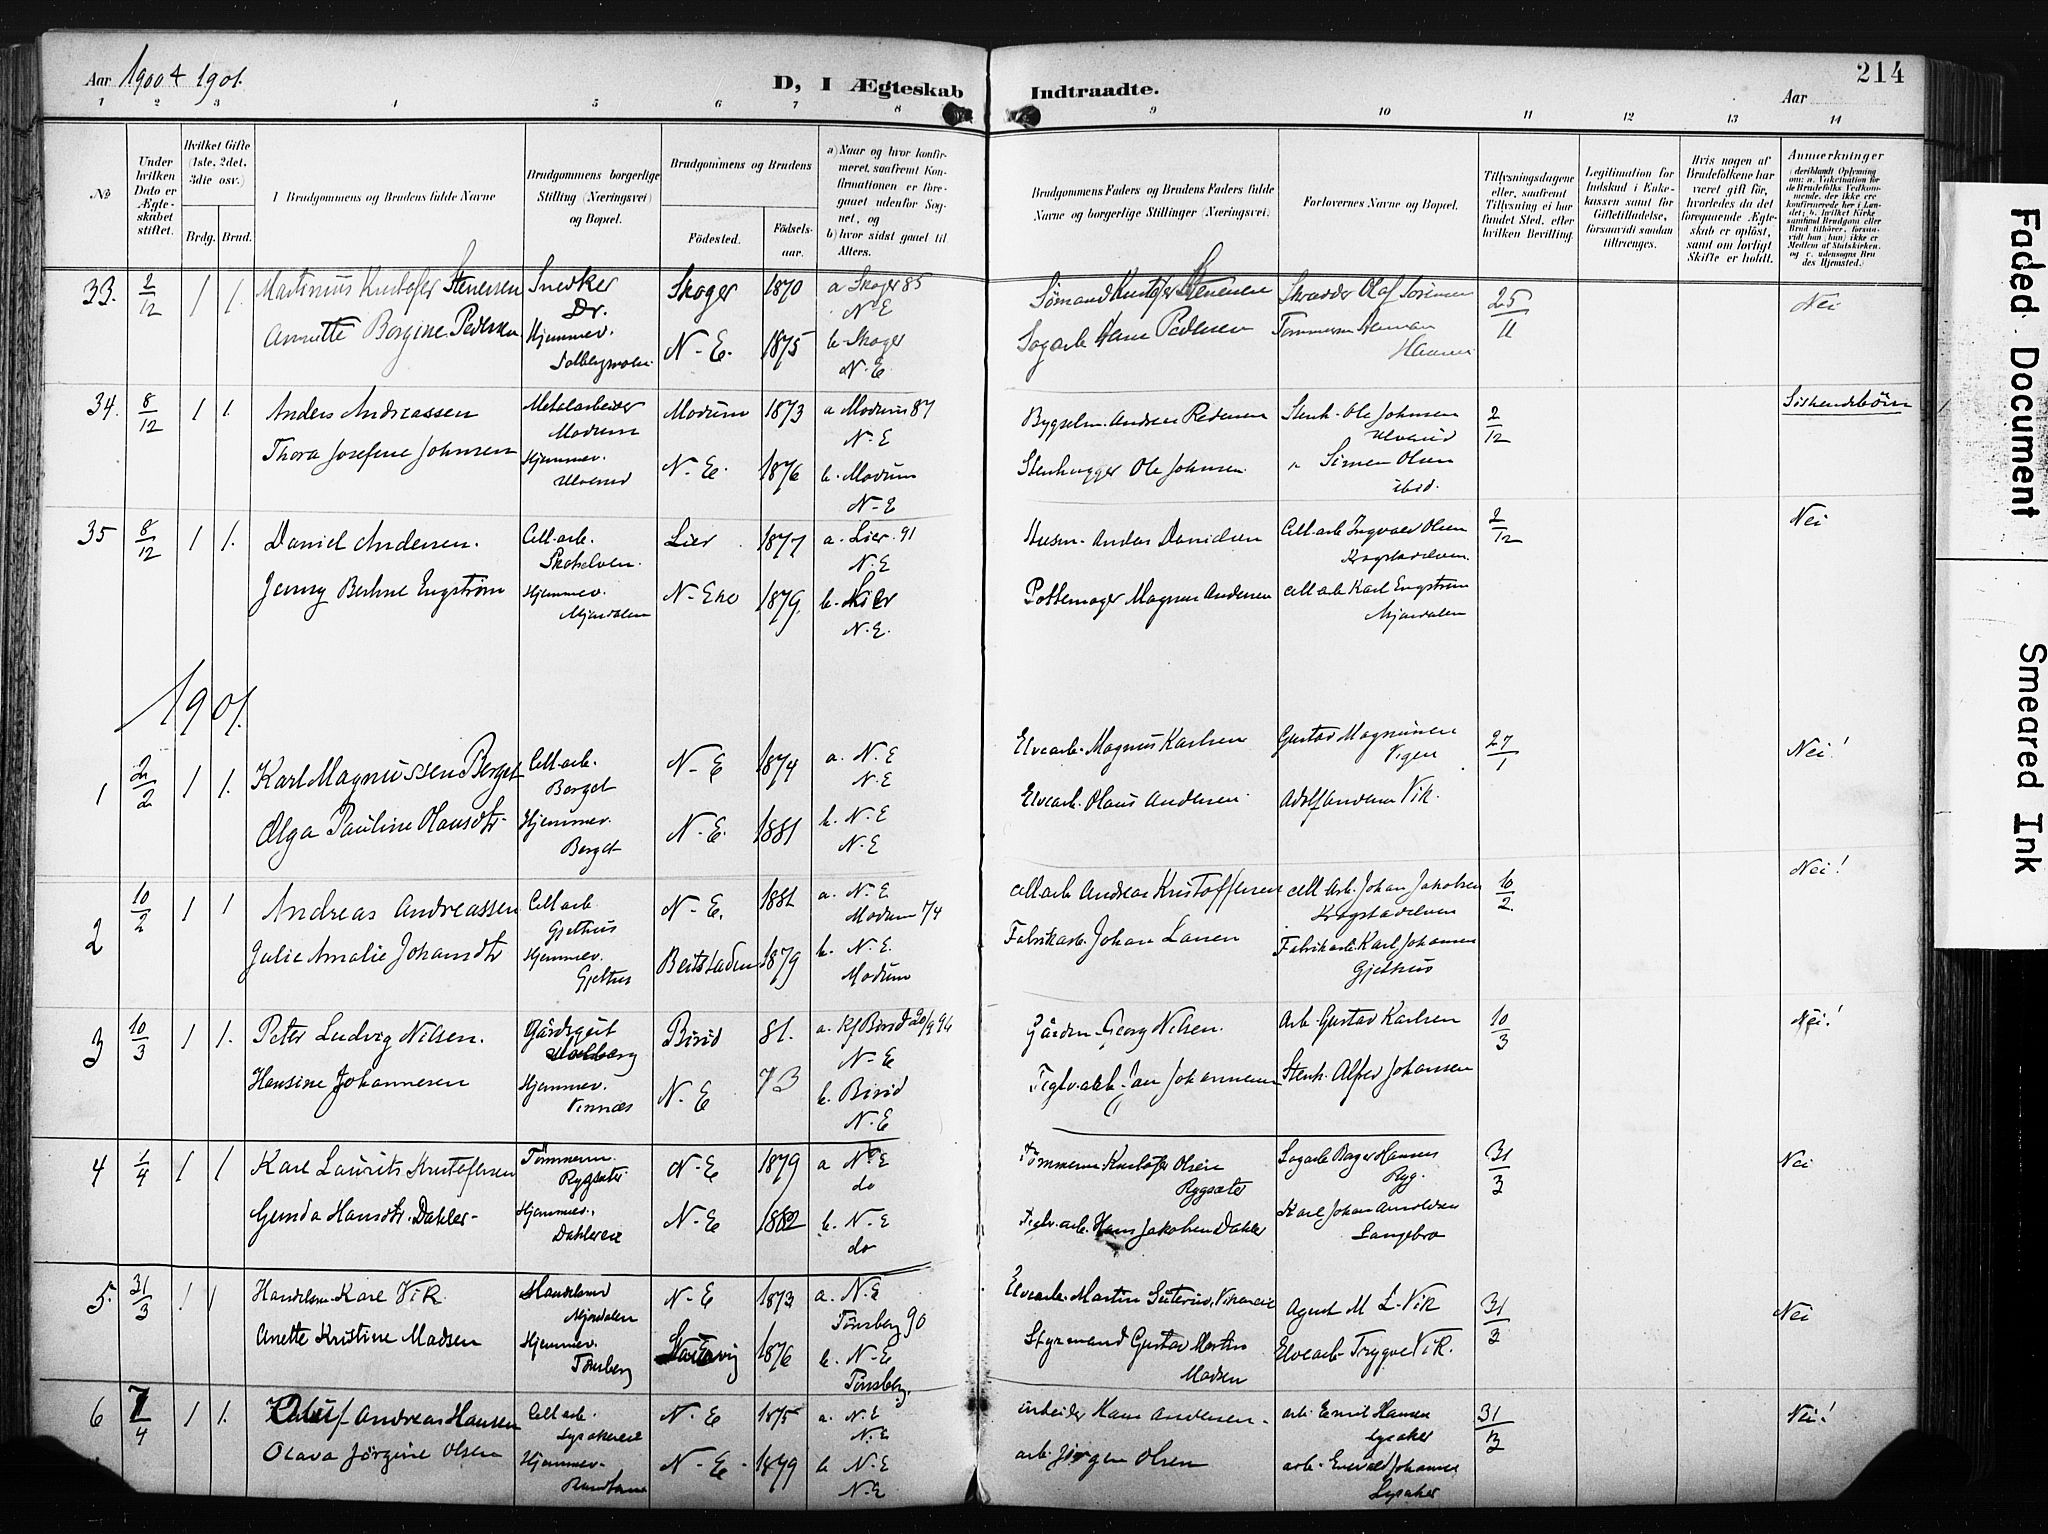 Aar 1900 & 1901.
D, I Ægteskab Indtraadte.
Aar
214
1 2 3 4 5 6 7 8 9 10 11 12 13 14
No
Under hvilken Dato er Ægteskabet stiftet.
Hvilket Gifte (1ste, 2det, 3die osv.)
Brdg. Brud.
I Brudgommens og Brudens fulde Navne
Brudgommens borgerlige Stilling (Næringsvei) og Bopæl.
Brudgommens og Brudens
Fødested.
Fødselsaar.
a) Naar og hvor konfirmeret, saafremt Konfirmationen er foregaaet udenfor Sognet, og
b) hvor sidst gaaet til Alters.
Brudgommens Faders og Brudens Faders fulde Navne og borgerlige Stillinger (Næringsvei.)
Forlovernes Navne og Bopæl.
Tillysningsdagene eller, saafremt Tillysning ei har fundet Sted, efter hvilken Bevilling.
Legitimation for Indskud i Enkekassen samt for Giftetilladelse, forsaavidt saadan tiltrænges.
Hvis nogen af Brudefolkene har været gift før, hvorledes da det foregaaende Ægteskab er opløst, samt om lovligt Skifte er holdt.
Anmærkninger
33. 2/12 1 1. Martinius Kristofer Stenersen Snedker Dr. Skoger 1870 a Skoger 85 N E Sømand Kristofer Stenersen Skrædder Olaf 25/11 Nei
Annette Borgine Pedersen Hjemmev. N-E. 1875 b. Skoger N.E. Sagarb. Hans Pedersen
34. 8/12 1 1. Anders Andreassen Metalarbeider Modum Modum 1873 a Modum 87 N-E Bygselm. Andreas Pedersen Stenh. Ole Johnsen Ulverud 2/12 Siskendebørn
Thora Josefine Johnsen Hjemmev. Ulverud N-E. 1876 b. Modum N-E Stenhugger Ole Johnsen " Simen Olsen ibid.
35 8/12 1 1. Daniel Andersen. Cell.arb. Skotselven. Lier 1877 a. Lier 91 N.E Anders Danielsen Cell.arb Ingvald Olsen Krogstadelven. 2/12 Nei
Jenny Engstrøm Hjemmev. Mjøndalen N-Eker 1879. b. Lier N.E. Pottemager Magnus Andersen cell arb Karl Engstrøm Mjøndalen
1901.
1 2/2 1 1. Karl Magnussen Berget Cell arb. Berget N-E 1874 a. N.E N.E Elvearb. Magnus Karlsen Gustav Magnussen 27/1 Nei!
Olga Pauline Hansdtr. Hjemmev. Berget N-E. 1881 b. N-E N-E Elvearb. Hans Andersen. Adolf Andersen Vik.
2 10/2 1 1 Andreas Andreassen Cell arb. Gjethus N-E. 1881 a. N.E Modum Cell arb Andreas Kristoffersen cell arb. Johan Jakobsen Krogstadelven 10/2 Nei!
Julie Amalie Johansdtr Hjemmev. Gjethus 1879 b. N.E. Modum Fabrikarb. Johan Larsen Fabrikarb. Karl Johansen Gjethus
3 10/3 1 1. Peter Ludvig Nilsen. Gårdsgut Birid 81. a. Kf Birid N-E Georg Nilsen. Arb. Gustav Karlsen 10/3 Nei!
Hansine Johannesen Hjemmev. Vinnæs N-E 73 b. Birid N-E Teglv.arb. Johannesen Stenh. Alfred Johansen
4 1/4 1 1 Karl Laurits Kristofersen Tømmerm. Rygsæter N-E 1879 a N-E do Tømmerm Kristofer Olsen Rygsæter Sagarb. Hansen Ryg. 31/3 Nei
Gunda Hansdtr. Dahler- Hjemmev. Dahlereie N-E 1882 b. N-E do Teglv.arb. Hans Jakobsen Dahler Karl Johan Arnoldsen Langebro
5. 31/3 1 1 Handelsm. Karl Vik Handelsmd Mjøndalen N-E 1873 a. N-E Tønsberg 90 Elvearb. Martin Agent M. L. Vik 31/3 Nei
Anette Kristine Madsen Hjemmev. Tønsberg 1876 b. N-E Tønsberg. Styrmand Gustav Martin Madsen Elvearb- Trygve Vik.
6 7/4 1 1. Oluf Andreas Hansen Cell arb. Lysakereie N-E 1875 a. N.E N.E arbeider Hans Andersen. arb. Emil Hansen Lysaker 31/3 Nei!
Olava Jørgine Olsen Hjemmev. N-E. 1879 b N-E N-E arb. Jørgen Olsen arb. Johannes Lysaker
Faded Document
Smeared Ink